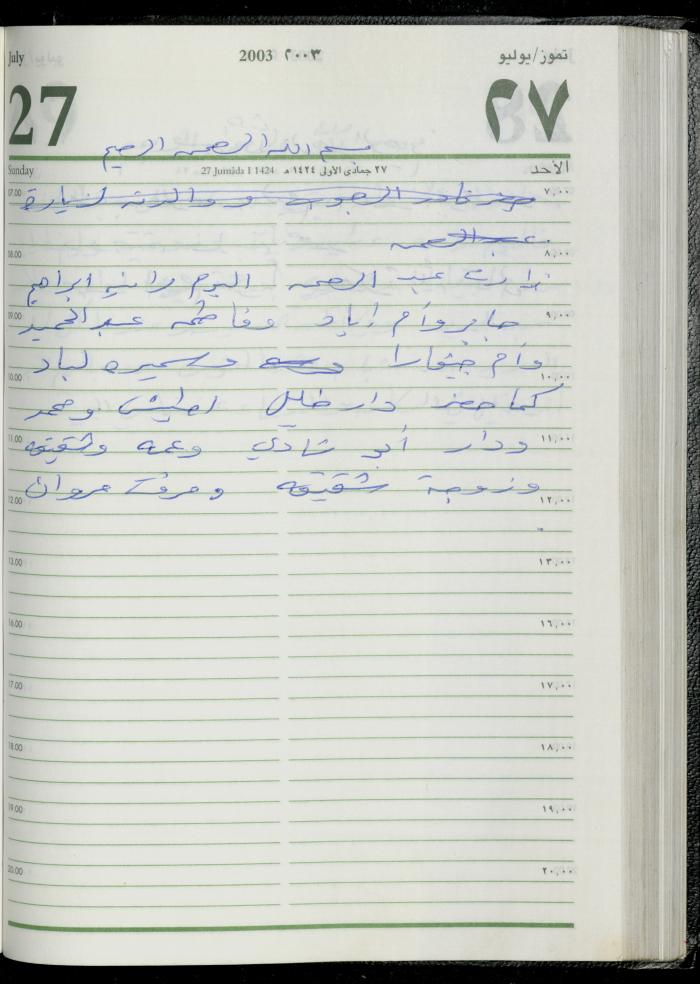 July 2003 ٢٠٠٣ تموز/يوليو
27 ٢٧
بسم الله الرحمن الرحيم
Sunday 27 Jumâda I 1424 ٢٧ جمادى الأولى ١٤٢٤ هـ الأحد
07.00 ووالدته لزيارة ٧,٠٠
عبد الرحمن
08.00 ٨,٠٠
زارت عبد الرحمن اليوم رانيه ابراهيم
09.00 جابر وأم إياد وفاطمه عبد الحميد ٩,٠٠
وأم جيفارا وسميره لباد
10.00 ١٠,٠٠
كما حضر دار خليل ومحمد
11.00 ودار أبو شادي وعمه وشقيقه ١١,٠٠
وزوجة شقيقه ومرفت مروان
12.00 ١٢,٠٠
13.00 ١٣,٠٠
16.00 ١٦,٠٠
17.00 ١٧,٠٠
18.00 ١٨,٠٠
19.00 ١٩,٠٠
20.00 ٢٠,٠٠